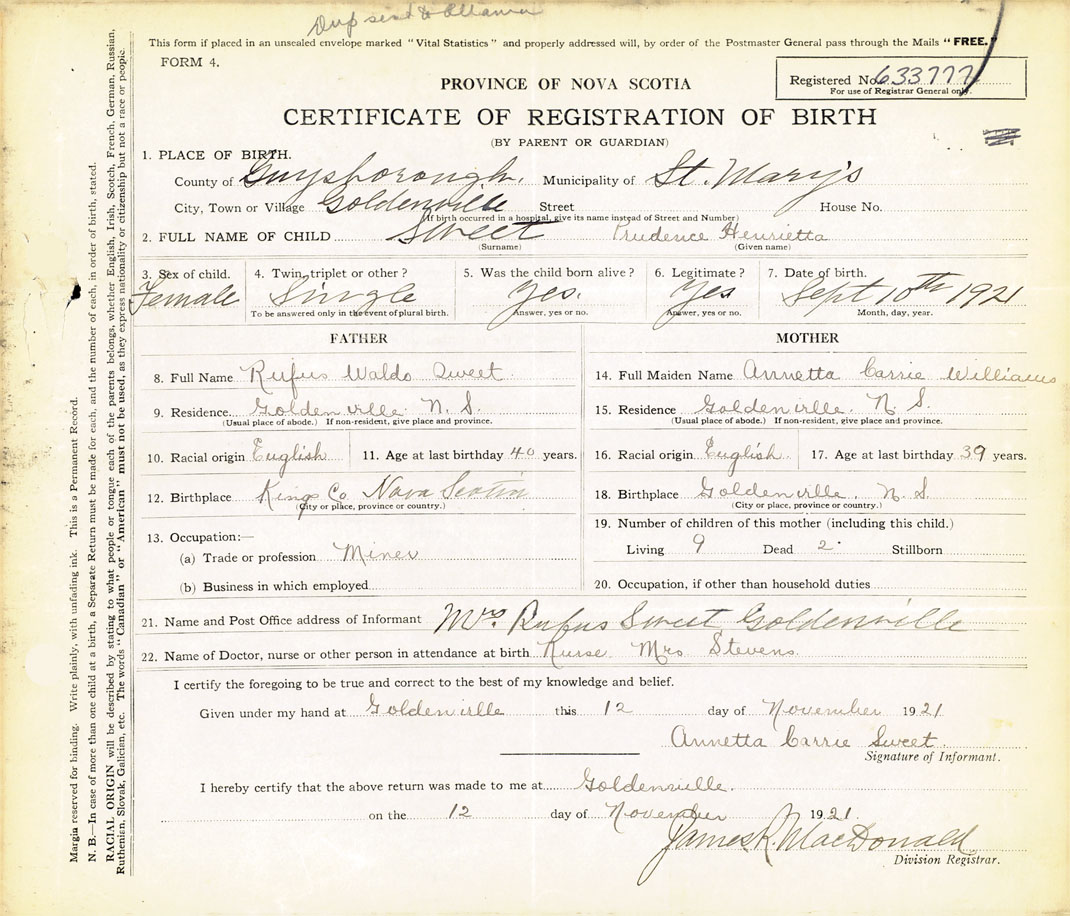 Dup sent to Ottawa
This form if placed in an unsealed envelope marked "Vital Statistics" and properly addressed will, by order of the Postmaster General pass through the Mails "FREE."
FORM 4.
Registered No. 633777
For use of Registrar General only.
PROVINCE OF NOVA SCOTIA
CERTIFICATE OF REGISTRATION OF BIRTH
(BY PARENT OR GUARDIAN)
1. PLACE OF BIRTH.
County of Guysborough. Municipality of St. Mary's
City, Town or Village Goldenville Street House No.
(If birth occurred in a hospital, give its name instead of Street and Number)
2. FULL NAME OF CHILD Sweet Prudence Henrietta
(Surname) (Given name)
3. Sex of child. 4. Twin, triplet or other? 5. Was the child born alive? 6. Legitimate? 7. Date of birth.
Female Single Yes. Yes Sept 10th 1921
To be answered only in the event of plural birth. Answer, yes or no. Answer, yes or no. Month, day, year.
FATHER MOTHER
8. Full Name Rufus Waldo Sweet 14. Full Maiden Name Annetta Carrie Williams
9. Residence Goldenville N. S. 15. Residence Goldenville. N. S.
(Usual place of abode.) If non-resident, give place and province. (Usual place of abode.) If non-resident, give place and province.
10. Racial origin English 11. Age at last birthday 40 years. 16. Racial origin English. 17. Age at last birthday 39 years.
12. Birthplace Kings Co Nova Scotia 18. Birthplace Goldenville, N. S.
(City or place, province or country.) (City or place, province or country.)
19. Number of children of this mother (including this child.)
13. Occupation:—
Living 9 Dead 2 Stillborn
(a) Trade or profession Miner
(b) Business in which employed 20. Occupation, if other than household duties
21. Name and Post Office address of Informant Mrs. Rufus Sweet Goldenville
22. Name of Doctor, nurse or other person in attendance at birth Nurse Mrs Stevens.
I certify the foregoing to be true and correct to the best of my knowledge and belief.
Given under my hand at Goldenville this 12 day of November 1921
Annetta Carrie Sweet.
Signature of Informant.
I hereby certify that the above return was made to me at Goldenville.
on the 12 day of November 1921.
James R. MacDonald
Division Registrar.
Margin reserved for binding. Write plainly, with unfading ink. This is a Permanent Record.
N. B.—In case of more than one child at a birth, a Separate Return must be made for each, and the number of each, in order of birth, stated.
RACIAL ORIGIN will be described by stating to what people or tongue each of the parents belongs, whether English, Irish, Scotch, French, German, Russian,
Ruthenian, Slovak, Galician, etc. The words "Canadian" or "American" must not be used, as they express nationality or citizenship but not a race or people.